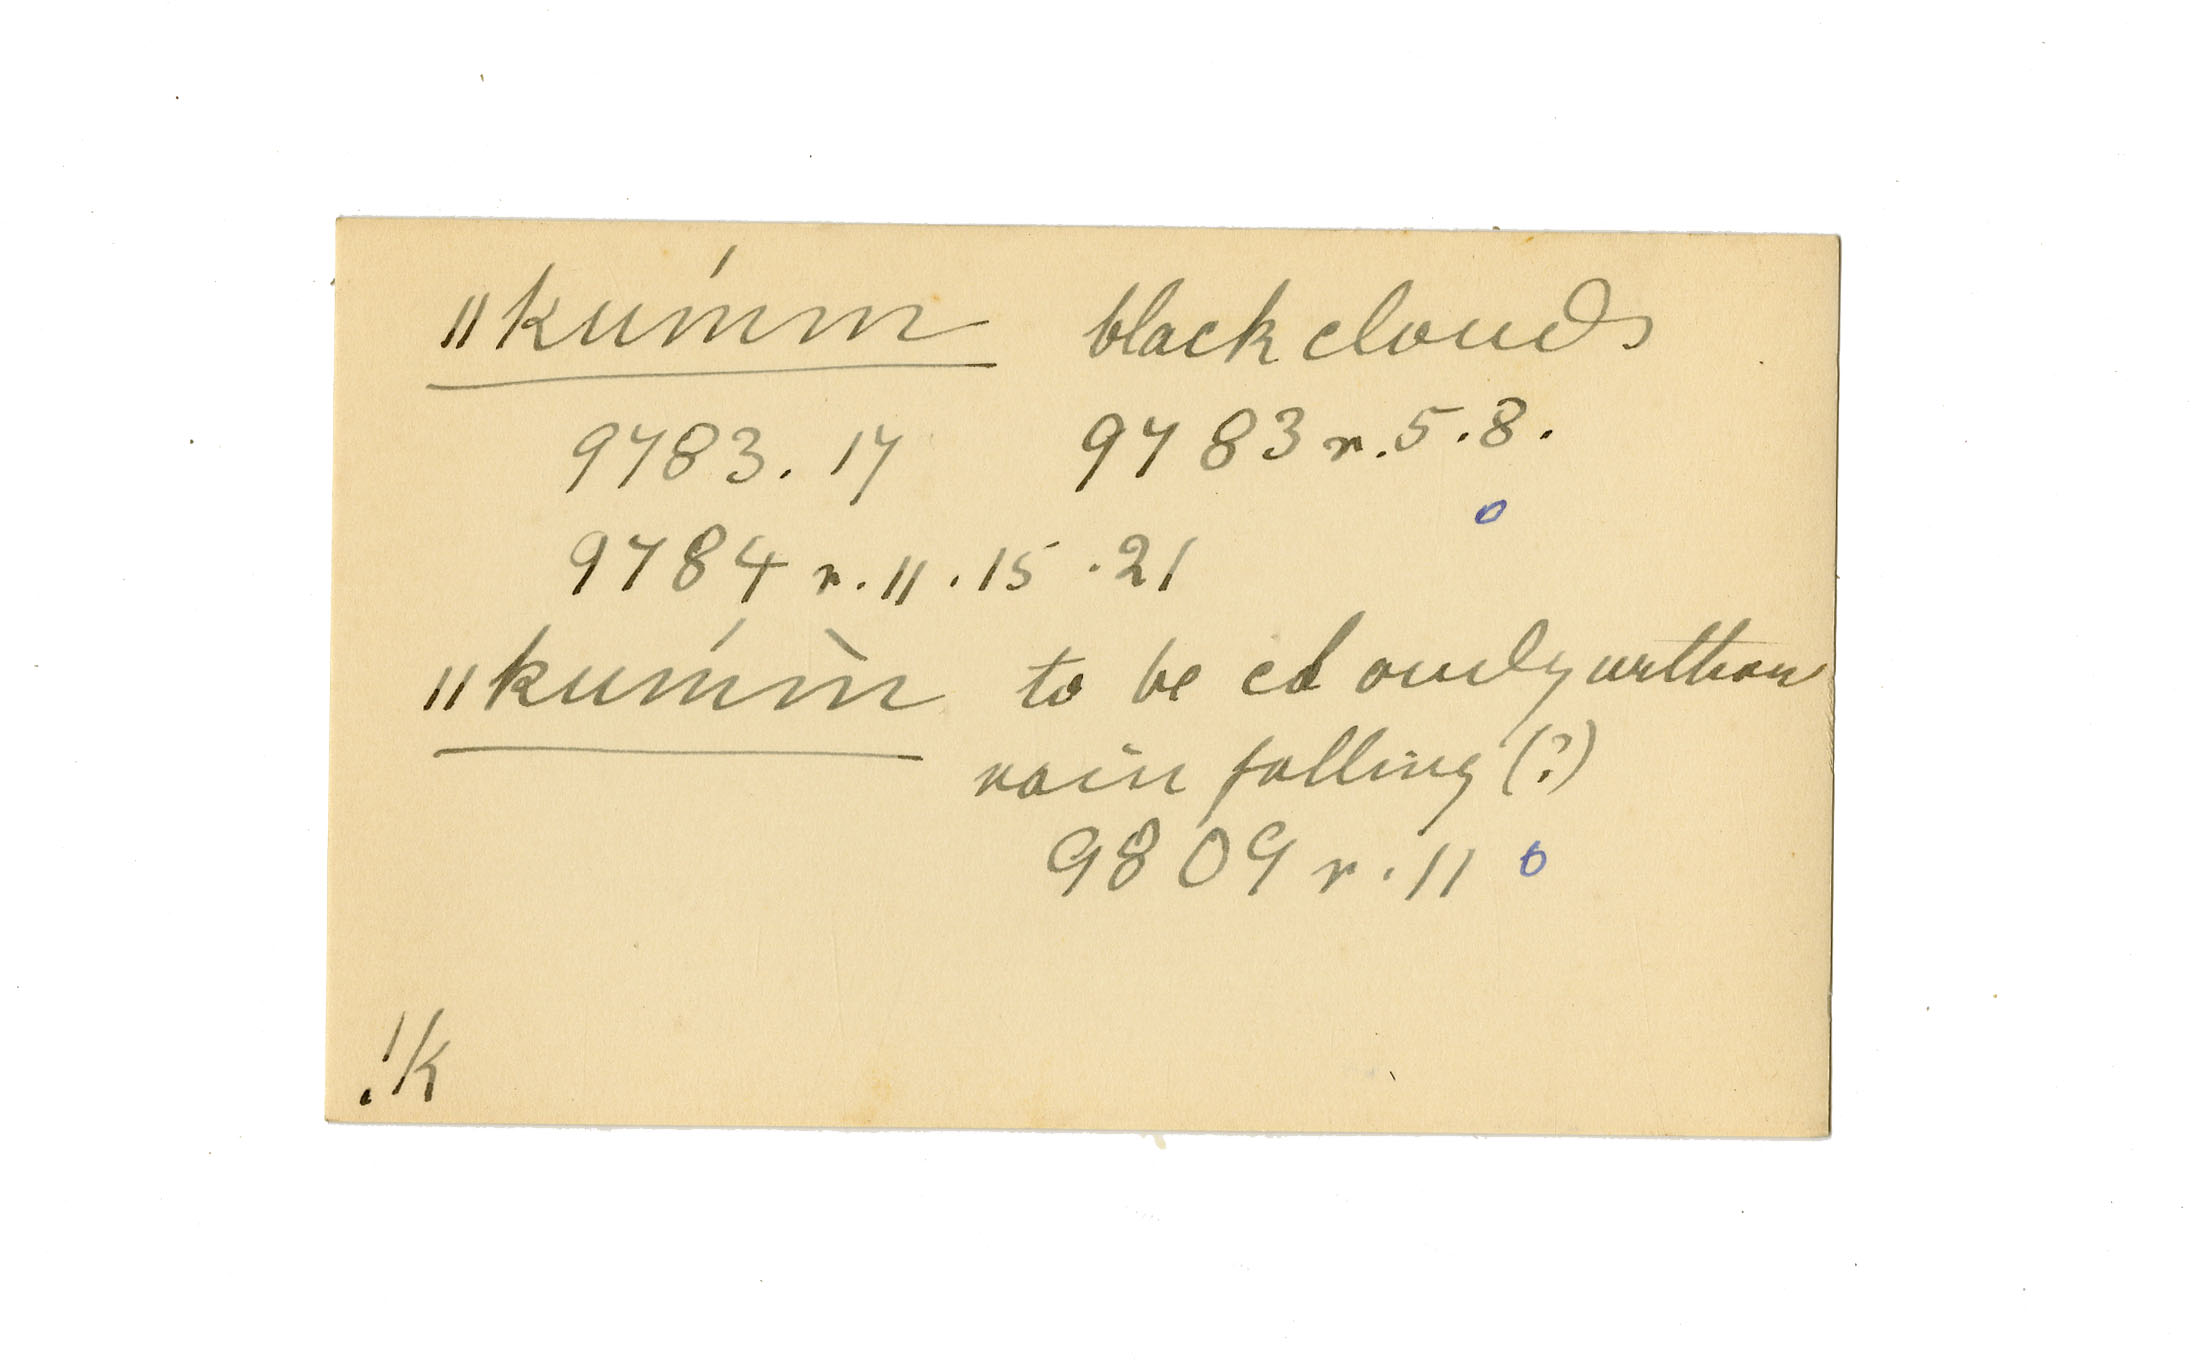 ǁkúmm black clouds
9783. 17 9783 r. 5. 8.
9784 r. 11. 15. 21
ǁkúm̀m to be cloudy without
rain falling (?)
9809 r. 11
!k